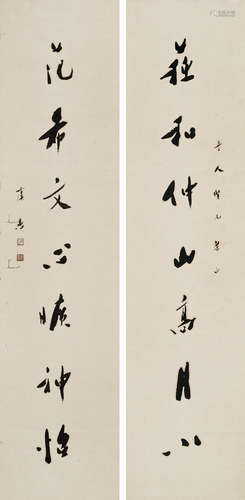 蘇和仲山高月小
范希文心曠神怡